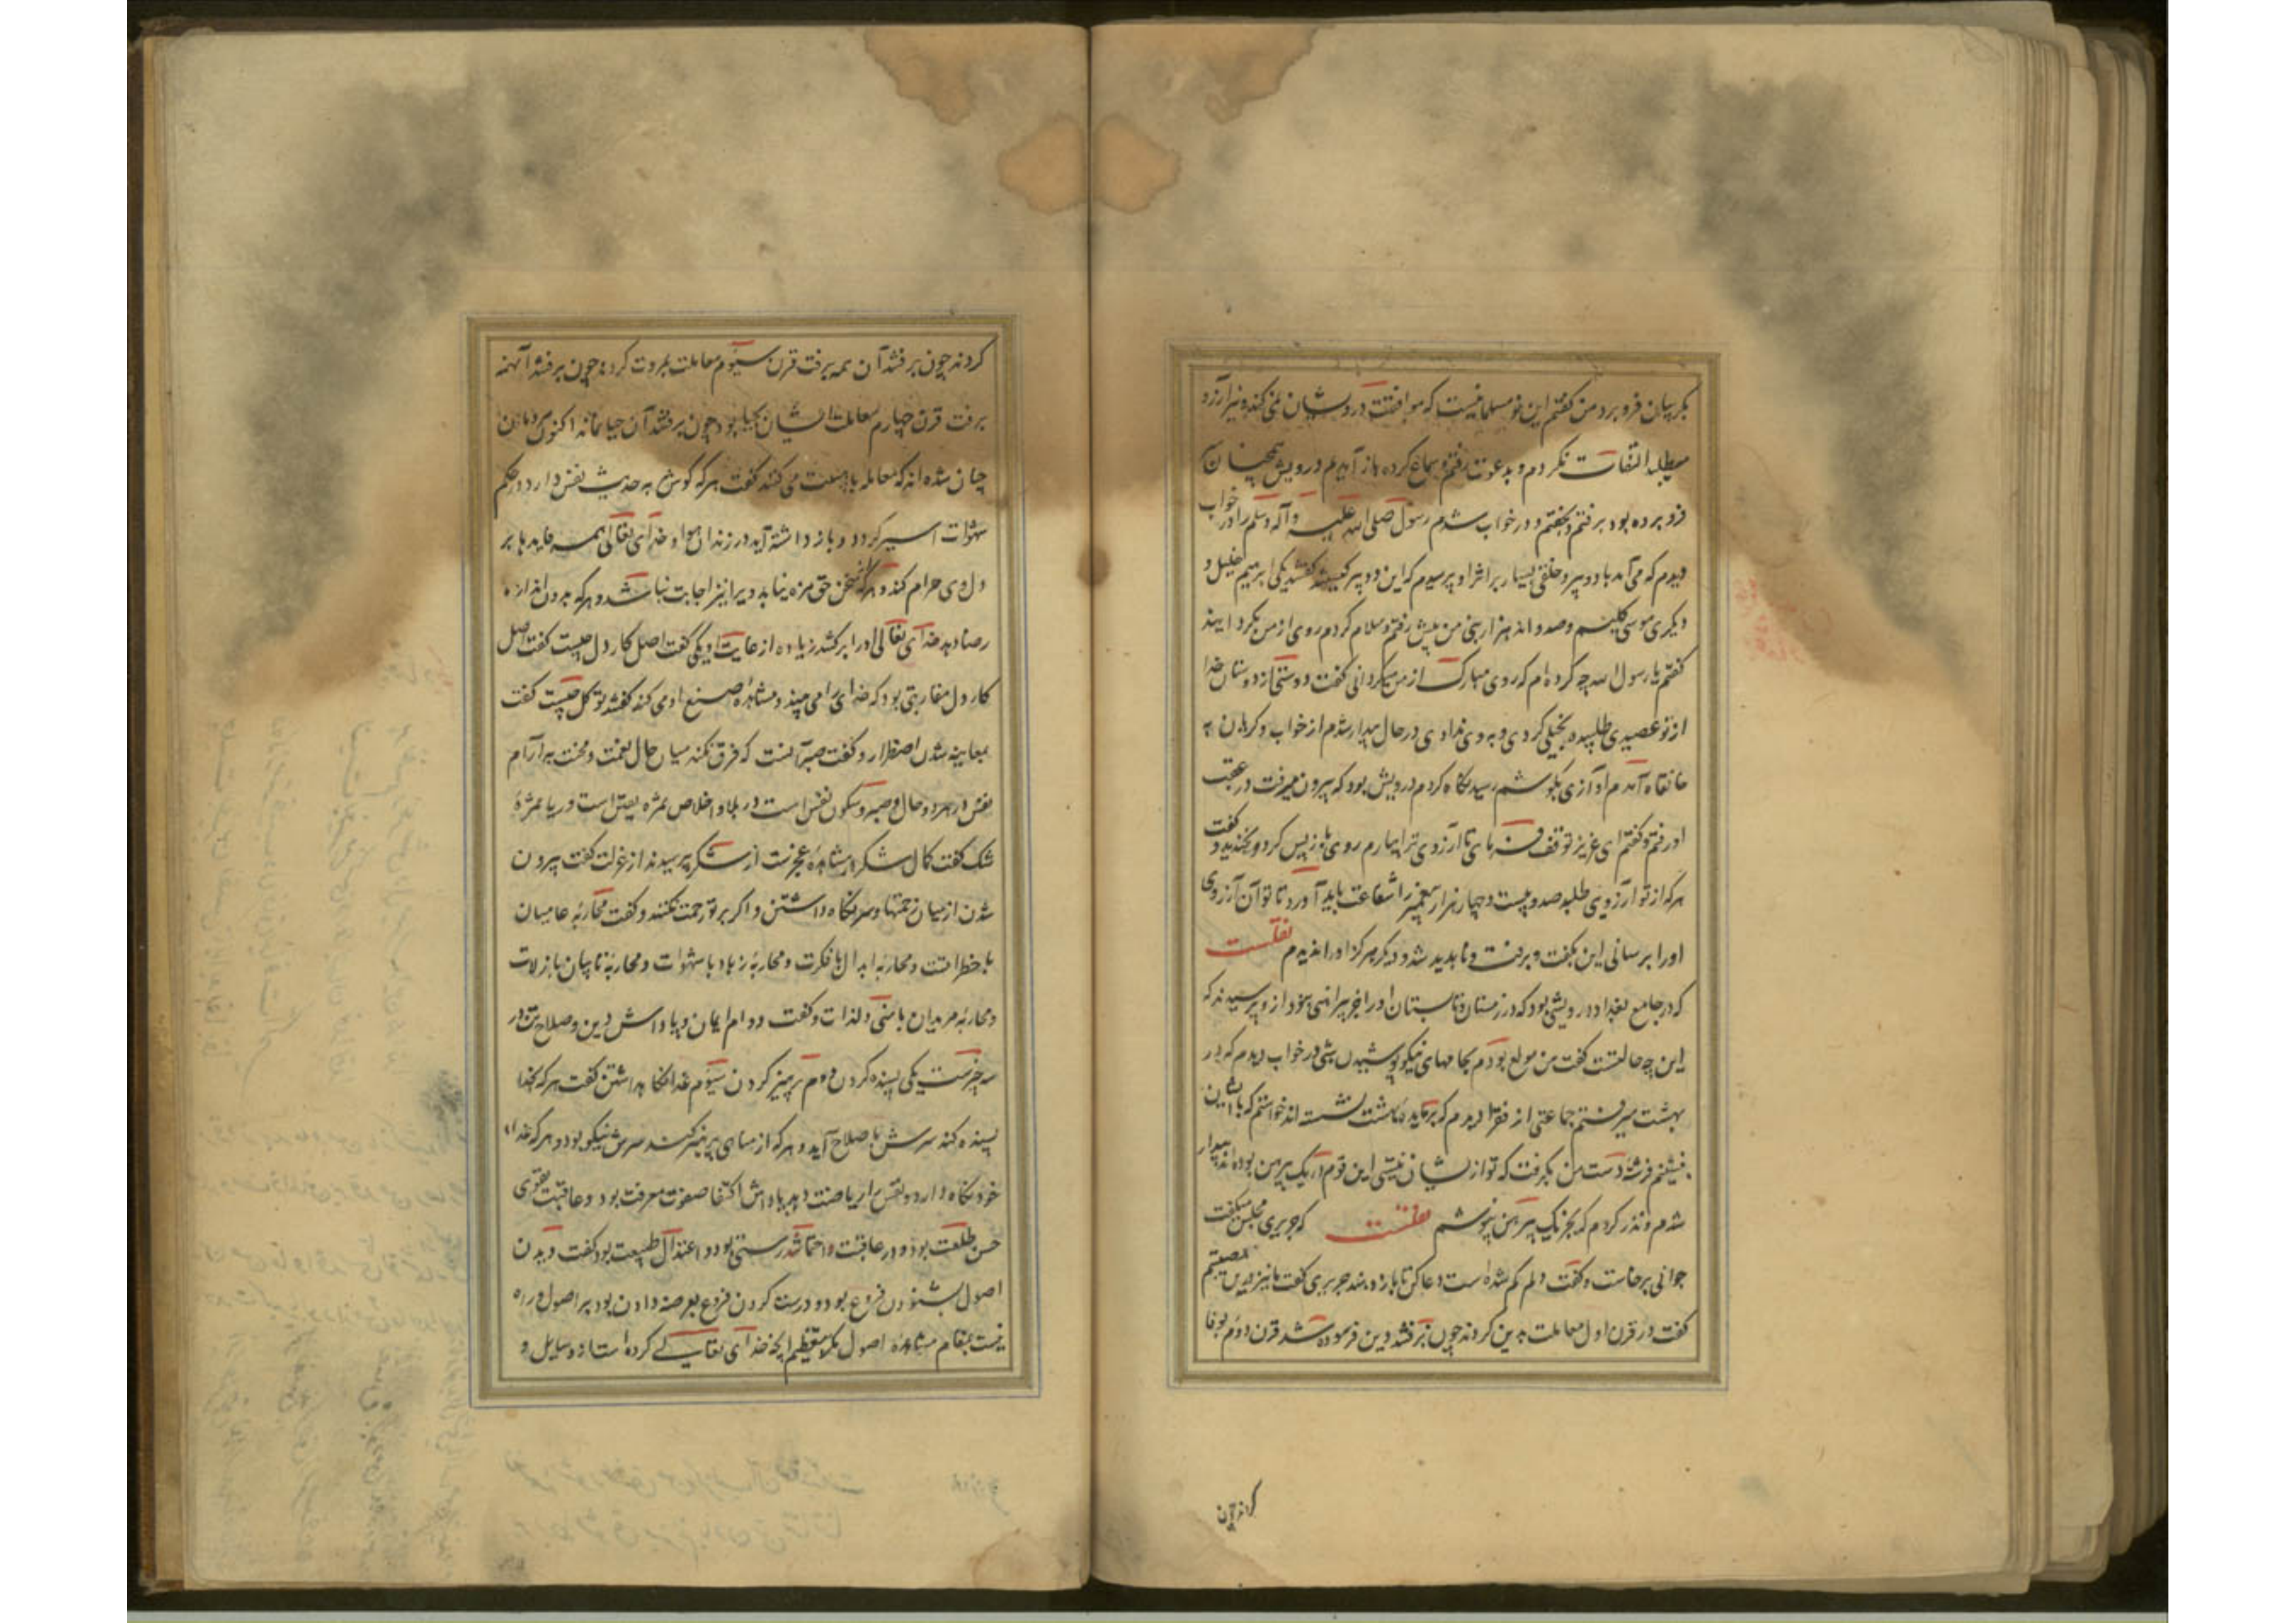 بگریبان فرو برد من گفتم این نو مسلمانیست که موافقت درویشان نمی کند و نیز آرزو
میطلبد التفات نکردم و بدعوت رفتم و سماع کرده باز آمدیم درویش همچنان سر
فرو برده بود برفتم و بخفتم و در خواب شدم رسول صلی الله علیه وآله وسلم را در خواب
دیدم که می آمد با دو پیر و خلقی بسیار بر اثر او پرسیدم که این دو پیر کیستند گفتند یکی ابرهیم خلیل و
دیگری موسی کلیم وصد و اند هزار نبی من پیش رفتم و سلام کردم روی از من بگردانید
گفتم یا رسول الله چه کرده ام که روی مبارک از من میگردانی گفت دوستی از دوستان خدا
از تو عصیدی طلبیده بخیلی کردی و به وی ندادی در حال بیدار شدم از خواب و گریان به
خانقاه آمدم آوازی بگوشم رسید نگاه کردم درویش بود که بیرون میرفت در عقب
او رفتم و گفتم ای عزیز توقف فرمای تا آرزوی ترا بیارم روی باز پس کرد و بخندید و گفت
هر که از تو آرزوی طلبد صد و بیست و چهار هزار پیغمبر را شفاعت باید آورد تا تو آن آرزوی
او را برسانی این بگفت و برفت و ناپدید شد و دیگر هرگز او را ندیدم نقلست
که در جامع بغداد درویشی بود که در زمستان و تابستان او را جز پیراهنی نبود از و پرسیدند که
این چه حالتست گفت من مولع بودم بجامهای نیکو پوشیدن شبی در خواب دیدم که در
بهشت میرفتم جماعتی از فقرا دیدم که بر مایده بهشت نشسته اند خواستم که با ایشان
بنشینم فرشته دست من بگرفت که تو از ایشان نیستی این قوم در یک پیرهن بوده اند بیدار
شدم و نذر کردم که بجز یک پیرهن نپوشم نقلست که جریری مجلس میگفت
جوانی برخاست و گفت دلم گم شده است دعا کن تا باز دهند جریری گفت ما نیز درین مصیبتیم
گفت در قرن اول معاملت بدین کردند چون برفتند دین فرسوده شد قرن دوم بوفا
کردند چون برفتند آن همه برفت قرن سیوم معاملت بمروت کردند چون برفتند آن همه
برفت قرن چهارم معاملت ایشان بحیا بود چون برفتند آن حیا نماند اکنون مردمان
چنان شده اند که معامله با هیبت می کنند گفت هر که گوش به حدیث نفس دارد در حکم
شهوات اسیر گردد و باز داشته آید در زندان هوا و خدای تعالی همه فایدها بر
دل وی حرام کند و هر که از سخن حق مزه نیابد ویرا نیز اجابت نباشد و هر که بدون اندازه
رضا دهد خدای تعالی او را برکشد زیاده از غایت او یکی گفت اصل کار دل چیست گفت اصل
کار دل مقاربتی بود که خدای را می بیند و مشاهده صنع او می کند گفتند توکل چیست گفت
بمعاینه شدن اضطرار و گفت صبر آنست که فرق نکند میان حال نعمت و محنت به آرام
نفس در هر دو حال و صبر سکون نفس است در بلا و اخلاص ثمره یقین است و ریا ثمرهٔ
شک گفت کمال شکر در مشاهدهٔ عجزست از شکر پرسیدند از عزلت گفت بیرون
شدن از میان زحمتها و سر نگاه داشتن و اگر بر تو رحمت نکنند و گفت محاربهٔ عامیان
با خطراتست و محاربهٔ ابدال با فکرت و محاربهٔ زهاد با شهوات و محاربهٔ تایبان با زلات
و محاربهٔ مریدان با منی و لذات و گفت دوام ایمان و پاداش دین و صلاح تن در
سه چیزست یکی بسنده کردن دوم پرهیز کردن سیوم غذا نگاه داشتن گفت هر که بخدا
بسنده کند سرش باصلاح آید و هر که از مناهی پرهیز کند سرش نیکو بود و هر که غذاء
خود نگاه دارد و نفس را ریاضت دهد پاداش اکتفا صفوت معرفت بود و عاقبت تقوی
حسن طلعت بود و در عاقبت و احتما تندرستی بود و اعتدال طبیعت بود گفت دیدن
اصول بشنودن فروع بود و درست کردن فروع بعرضه دادن بود بر اصول و راه
نیست بمقام مشاهده اصول مگر بتعظیم آنچه خدای تعالی کرده است از وسایل و